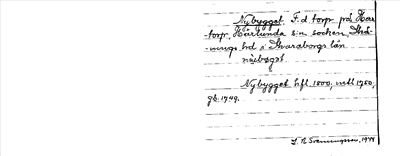 Nybygget. F.d torp på Har-
torp, Härlunda sn socken, Skå-
nings hd i Skaraborgs län.
nẏbaget
Nybygget hfl. 1800, mtl 1750,
gb. 1749.
L. R. Svenungsson, 1944